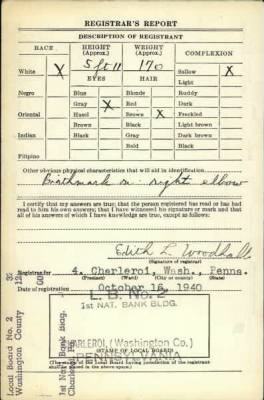 REGISTRAR'S REPORT
DESCRIPTION OF REGISTRANT
RACE HEIGHT (Approx.) WEIGHT (Approx.) COMPLEXION
White X 5 ft 11 170 Sallow X
EYES HAIR Light
Ruddy
Negro Blue Blonde Dark
Gray X Red Freckled
Oriental Hazel Brown X Light brown
Brown Black Dark brown
Indian Black Gray Black
Bald
Filipino
Other obvious physical characteristics that will aid in identification
Birthmark on right elbow
I certify that my answers are true; that the person registered has read or has
had read to him his own answers; that I have witnessed his signature or mark and that
all of his answers of which I have knowledge are true, except as follows:
Edith L. Woodhall
(Signature of registrar)
Registrar for 4. Charleroi, Wash., Penna.
(Precinct) (Ward) (City or county) (State)
Date of registration October 16, 1940
L. B. No. 2
1st NAT. BANK BLDG.
CHARLEROI, (Washington Co.)
PENNSYLVANIA
(STAMP OF LOCAL BOARD)
(The stamp of the Local Board having jurisdiction of the registrant
shall be placed in the above space.)
Local Board No. 2
Washington County
1st Nat. Bank Bldg.
Charleroi, Pa.